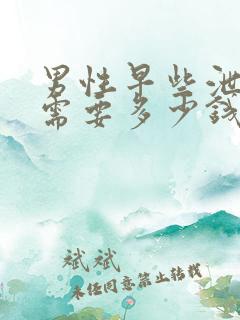 男性早些泄
需要多少钱
斌斌
未经同意禁止转载